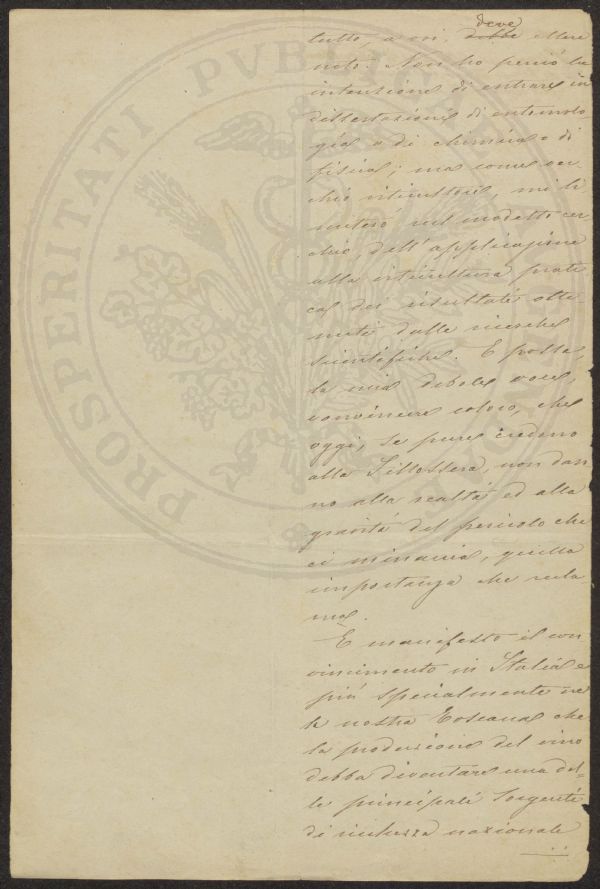 deve
tutto, a voi debbe essere
noto. Non ho perciò la
intenzione di entrare in
dissertazioni di entomolo
gia o di chimica o di
fisica; ma come vec
chio viticultore, mi li
miterò nel modesto cer
chio, dell'applicazione
alla viticultura prati
ca, dei risultati otte
nuti dalle ricerche
scientifiche. E possa,
la mia debole voce,
convincere coloro, che
oggi, se pure credono
alla Fillossera, non dan
no alla realtà ed alla
gravità del pericolo che
ci minaccia, quella
importanza che recla
ma.
È manifesto il con
vincimento in Italia e
più specialmente nel
la nostra Toscana che
la produzione del vino
debba diventare una del=
le principali sorgenti
di ricchezza nazionale
PROSPERITATI PUBLICAE